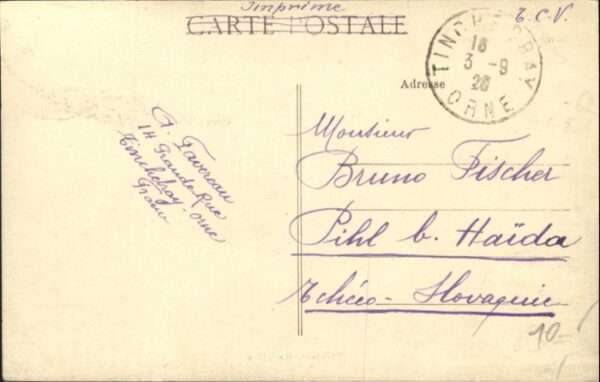 Imprimé
CARTE POSTALE
T.C.V.
TINCHEBRAY
18
3-9
26
ORNE
Adresse
Monsieur
Bruno Fischer
Pihl b. Haïda
Tchéco-Slovaquie
14 Grande Rue
Tinchebray - Orne
10-